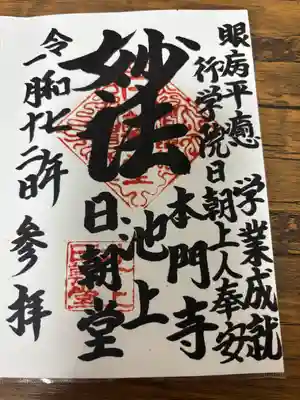 眼病平癒 学業成就
行学院日朝上人奉安
本門寺
池上
妙法
日朝堂
令和七年
参拝